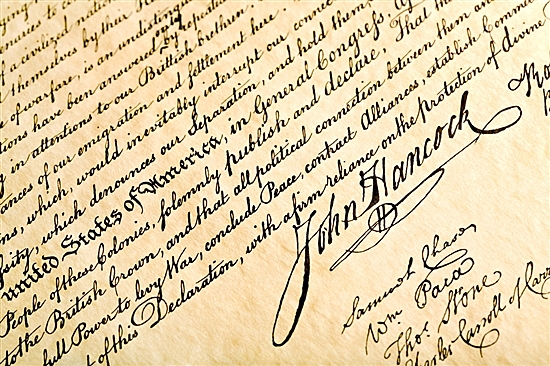 of a civilized nation.
themselves by their
of warfare, is an undistinguis
ions have been answered only by repeated
in attentions to our Brittish brethren.
ances of our emigration and settlement here.
ns, which, would inevitably interrupt our conne
ssity, which denounces our Separation, and hold them
united States of America, in General Congress,
People of these Colonies, solemnly publish and declare, That th
to the British Crown, and that all political connection between them an
full Power to levy War, conclude Peace, contract Alliances, establish Comme
t of this Declaration, with a firm reliance on the protection of divine
John Hancock
Samuel Chase
Wm Paca
Thos Stone
Charles Carroll of Carr